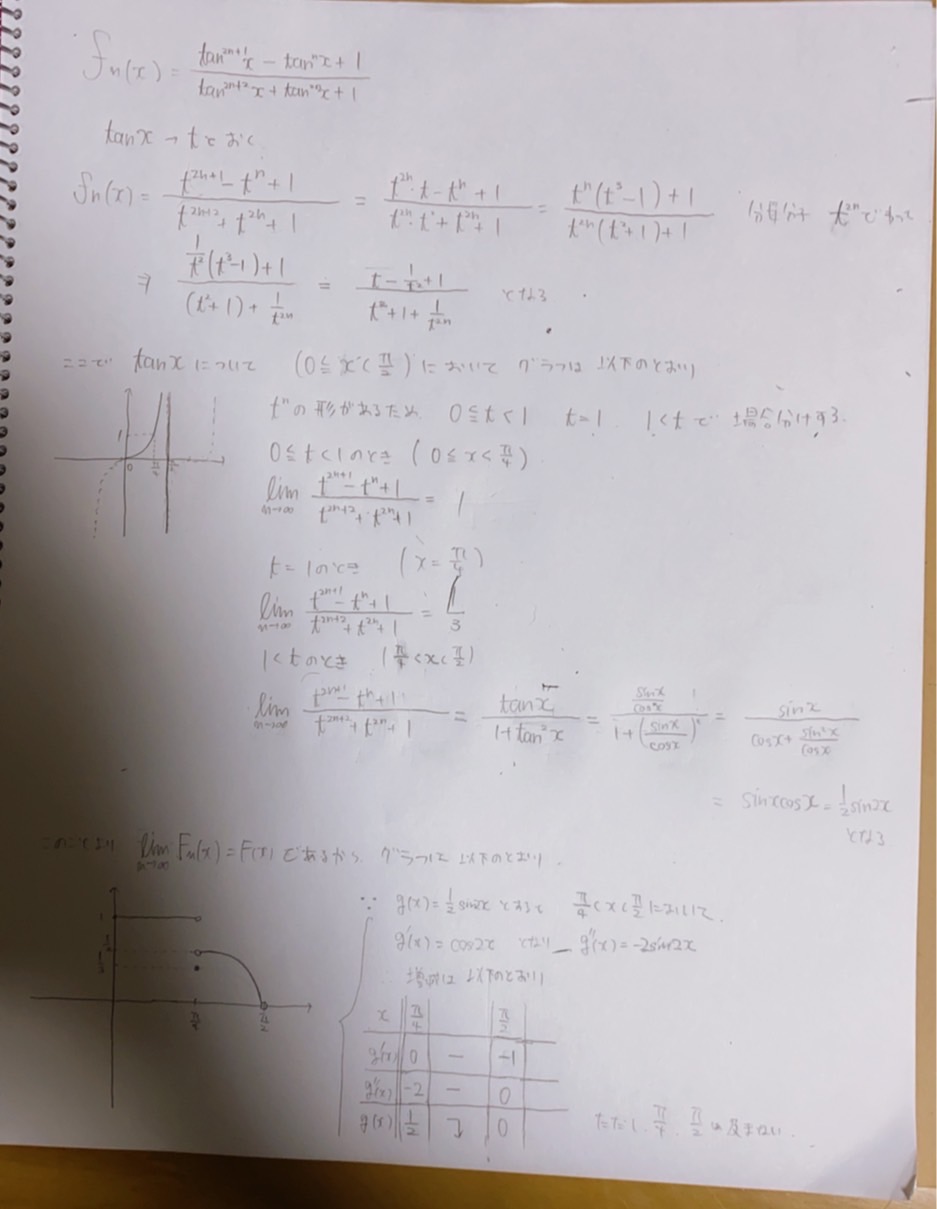 fn(x) = (tan^{2n+1}x − tan^n x + 1)/(tan^{2n+2}x + tan^{2n}x + 1)
tanx → t とおく
fn(x) = (t^{2n+1} − t^n + 1)/(t^{2n+2} + t^{2n} + 1) = (t^{2n}·t − t^n + 1)/(t^{2n}·t² + t^{2n} + 1) = (t^n(t³−1)+1)/(t^{2n}(t²+1)+1) 分母分子 t^{2n}でわって
⇒ (1/t²(t³−1)+1)/((t²+1)+1/t^{2n}) = (t − 1/t² + 1)/(t²+1+1/t^{2n}) となる
ここで tanxについて (0≦x<π/2)において グラフは 以下のとおり
t^nの形があるため 0≦t<1 t=1 1<tで 場合分けする.
1
0 π/4 π/2
0≦t<1のとき (0≦x<π/4)
lim n→∞ (t^{2n+1} − t^n + 1)/(t^{2n+2} + t^{2n} + 1) = 1
t=1のとき (x=π/4)
lim n→∞ (t^{2n+1} − t^n + 1)/(t^{2n+2} + t^{2n} + 1) = 1/3
1<tのとき (π/4<x<π/2)
lim n→∞ (t^{2n+1} − t^n + 1)/(t^{2n+2} + t^{2n} + 1) = tanx/(1+tan²x) = (sinx/cosx)/(1+(sinx/cosx)²) = sinx/(cosx + sin²x/cosx)
= sinxcosx = 1/2 sin2x
となる
このことより lim n→∞ Fn(x)=F(x) であるから グラフは 以下のとおり.
∵ g(x)=1/2 sin2x とおいて π/4<x<π/2において.
g'(x)=cos2x となり g''(x)=−2sin2x
増減は 以下のとおり
1
1/2
1/3
π/4 π/2
x π/4 π/2
g'(x) 0 − −1
g''(x) −2 − 0
g(x) 1/2 ↘ 0
ただし π/4, π/2は含まない.